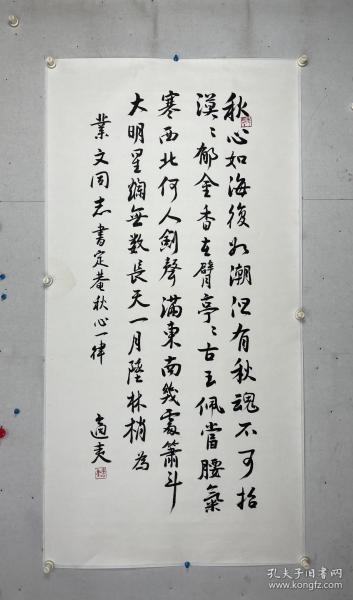 秋心如海復如潮但有秋魂不可招
漠〻郁金香在臂亭〻古玉佩當腰氣
寒西北何人劍聲滿東南幾處簫斗
大明星爛無數長天一月墜林梢為
業文同志書定菴秋心一律 適夷
孔夫子旧书网